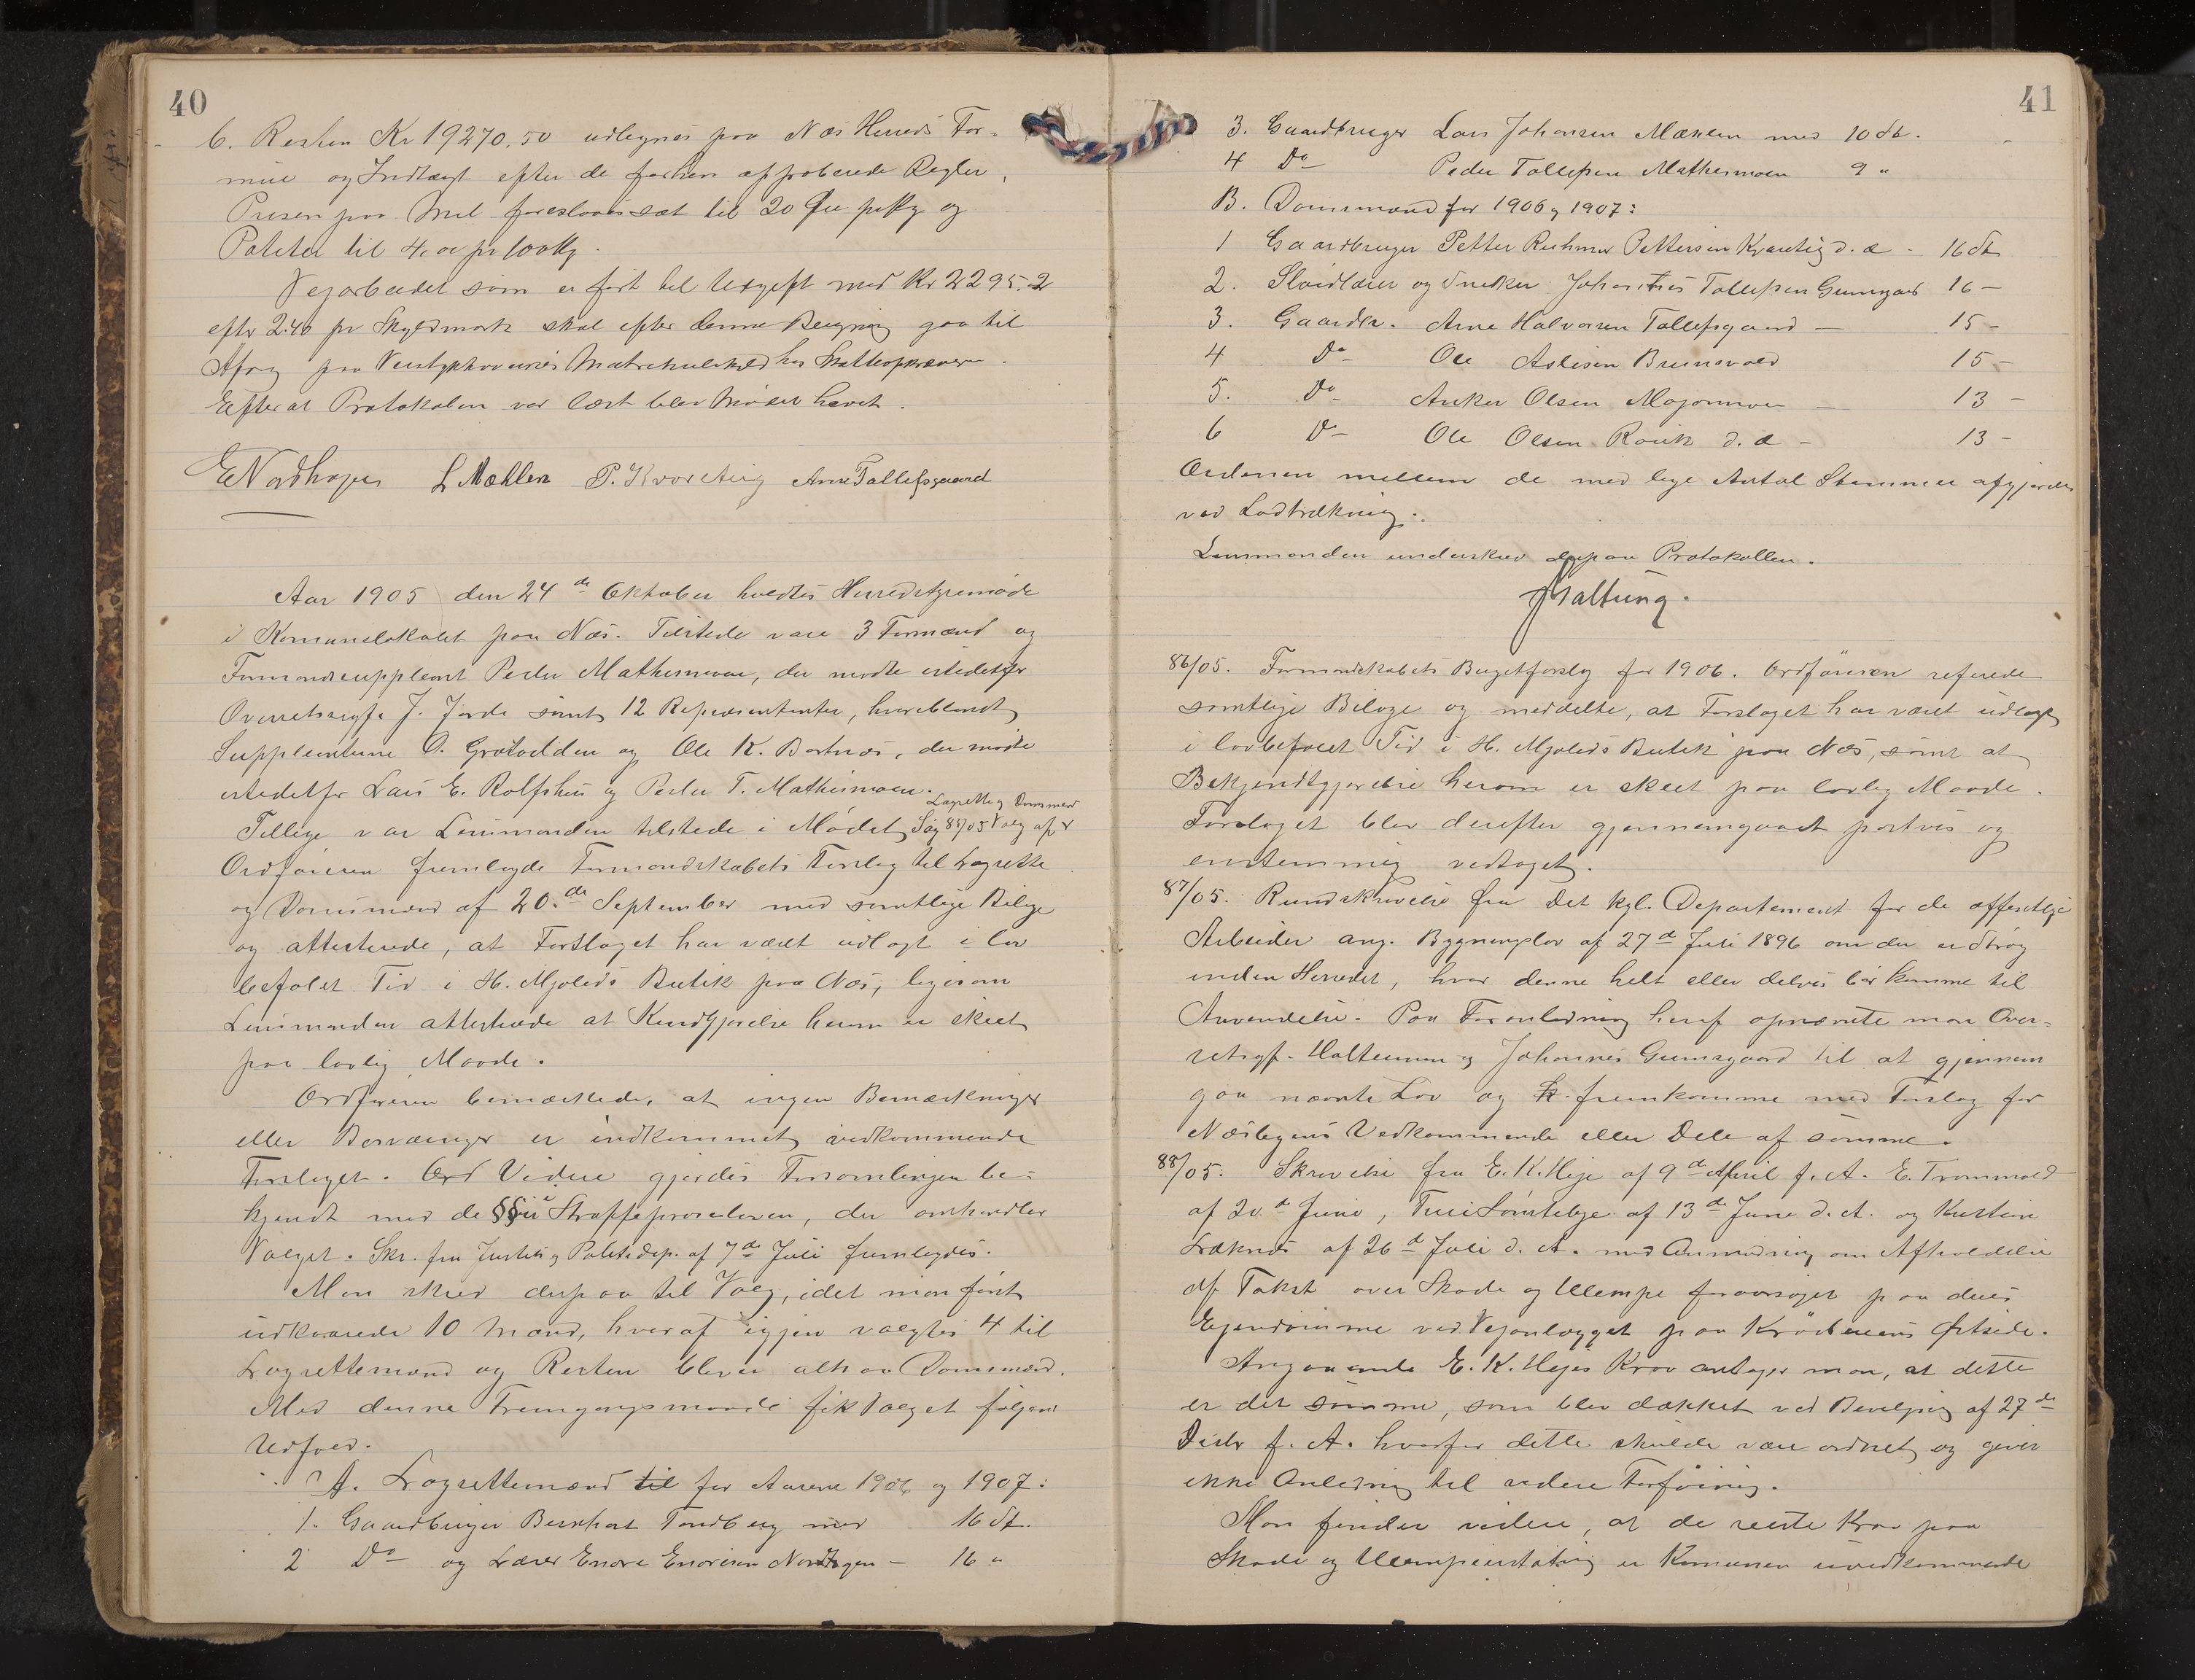 40
6. Resten Kr 19270.50 udlignes paa Næs Herreds For-
mue og Indtægt efter de forhen approberede Regler,
Prisen paa Mel foreslaaes sat til 20 Øre pr Kg og
Poteter til 4.00 pr 100 Kg.
Vejarbeidet som er ført til Udgift med Kr 2295.2
efter 2.40 pr Skyldmark skal efter denne gaa til
paa hos
Efterat Protokolen var læst blev Mødet hævet.
E Nordhagen L Mæhlen P. Kvarteig Arne Tollefsgaard
Aar 1905 den 24de Oktober holdtes Herredstyremøde
i Komunelokalet paa Næs. Tilstede vare 3 Formænd og
Formandssuppleant Peder Mathismoen, der mødte istedetfor
Overretssagfr. J. Jorde samt 12 Repræsentanter, hvoriblandt
Suppleanterne O. Grøtvolden og Ole K. Bortnæs, der mødte
istedetfor Lars E. Rolfshus og Peder T. Mathismoen.
Tillige var Lensmanden tilstede i Mødet, Sag 85/05 Valg af Lagrette og Domsmænd
Ordføreren fremlagde Formandskabets Forslag til Lagrette
og Domsmænd af 20.de September med samtlige Bilage
og attesterede, at Forslaget har været udlagt i lov
befalet Tid i H. Mjøleds Butik paa Næs, ligesom
Lensmanden attesterede at Kundgjørelse herom er skeet
paa lovlig Maade.
Ordføreren bemærkede, at ingen Bemærkninger
eller Besværinger er indkommet vedkommende
Forslaget. Videre gjordes Forsamlingen be-
kjendt med de §§er i Straffeprocesloven, der omhandler
Valget. Skr. fra Justits og Politidep. af 7de Juli fremlagdes.
Man skred derpaa til Valg, idet man først
udkaarede 10 Mænd, hvoraf igjen valgtes 4 til
Lagrettemænd og Resten blever altsaa Domsmænd.
Med denne Fremgangsmaade fik Valget følgende
Udfald.
A. Lagrettemænd til for Aarene 1906 og 1907:
1. Gaardbruger Bernhart Tandberg med 16 St.
2 Do og Lærer Endre Endresen Nordhagen - 16 "
41
3. Gaardbruger Lars Johansen Mæhlen med 10 St.
4 Do Peder Tollefsen Mathismoen 9 "
B. Domsmænd for 1906 og 1907:
1 Gaardbruger Petter Pettersen Kvarteig d. æ - 16 St
2. Sløidlærer og Snedker Johannes Tollefsen Gunsgaard 16 -
3. Gaardbr. Arne Halvorsen Tollefsgaard - 15 -
4 Do Ole Aslesen Brunsvold 15 -
5. Do Anker Olsen - 13 -
6 Do Ole Olsen Rovik d. æ - 13 -
Ordenen mellem de med lige Antal Stemmer afgjordes
ved Lodtrækning.
Lensmanden underskrev derpaa Protokollen.
J Baltung.
86/05. Formandskabets Bugetforslag for 1906. Ordføreren refererede
samtlige Bilage og meddelte, at Forslaget har været udlagt
i lovbefalet Tid i H. Mjøleds Butik paa Næs, samt at
Bekjendtgjørelse herom er skeet paa lovlig Maade.
Forslaget blev derefter gjennemgaaet postvis og
enstemmig vedtaget.
87/05. Rundskrivelse fra det kgl. Departement for de offentlige
Arbeider ang. Bygningslov af 27de Juli 1896 om der er Strøg
inden Herredet, hvor denne helt eller delvis bør komme til
Anvendelse. Paa Foranledning heraf opnævnte man Over-
retsagf. Halteinnen og Johannes Gunsgaard til at gjennem
gaa nævnte Lov og fremkomme med Forslag for
Næsbyens Vedkommende eller Dele af samme.
88/05. Skrivelse fra E. K. Heje af 9de April f. A. E. Trommald
af 20de Juni, Turi Sønstebye af 13de Juni d. A. og Kristian
Lræknes af 26de Juli d. A. med Anmodning om Afholdelse
af Takst over Skade og Ulempe foraarsaget paa deres
Ejendomme ved Vejanlægget paa Krøderens Østside.
Angaaende E. K. Hejes Krav antager man, at dette
er det samme, som blev dækket ved Bevilgning af 27de
Decbr f. A. hvorfor dette skulde være ordnet og giver
ikke Anledning til videre Forføining.
Man finder videre, at de reiste Krav paa
Skade og Ulempeerstatning er Komunen uvedkommende